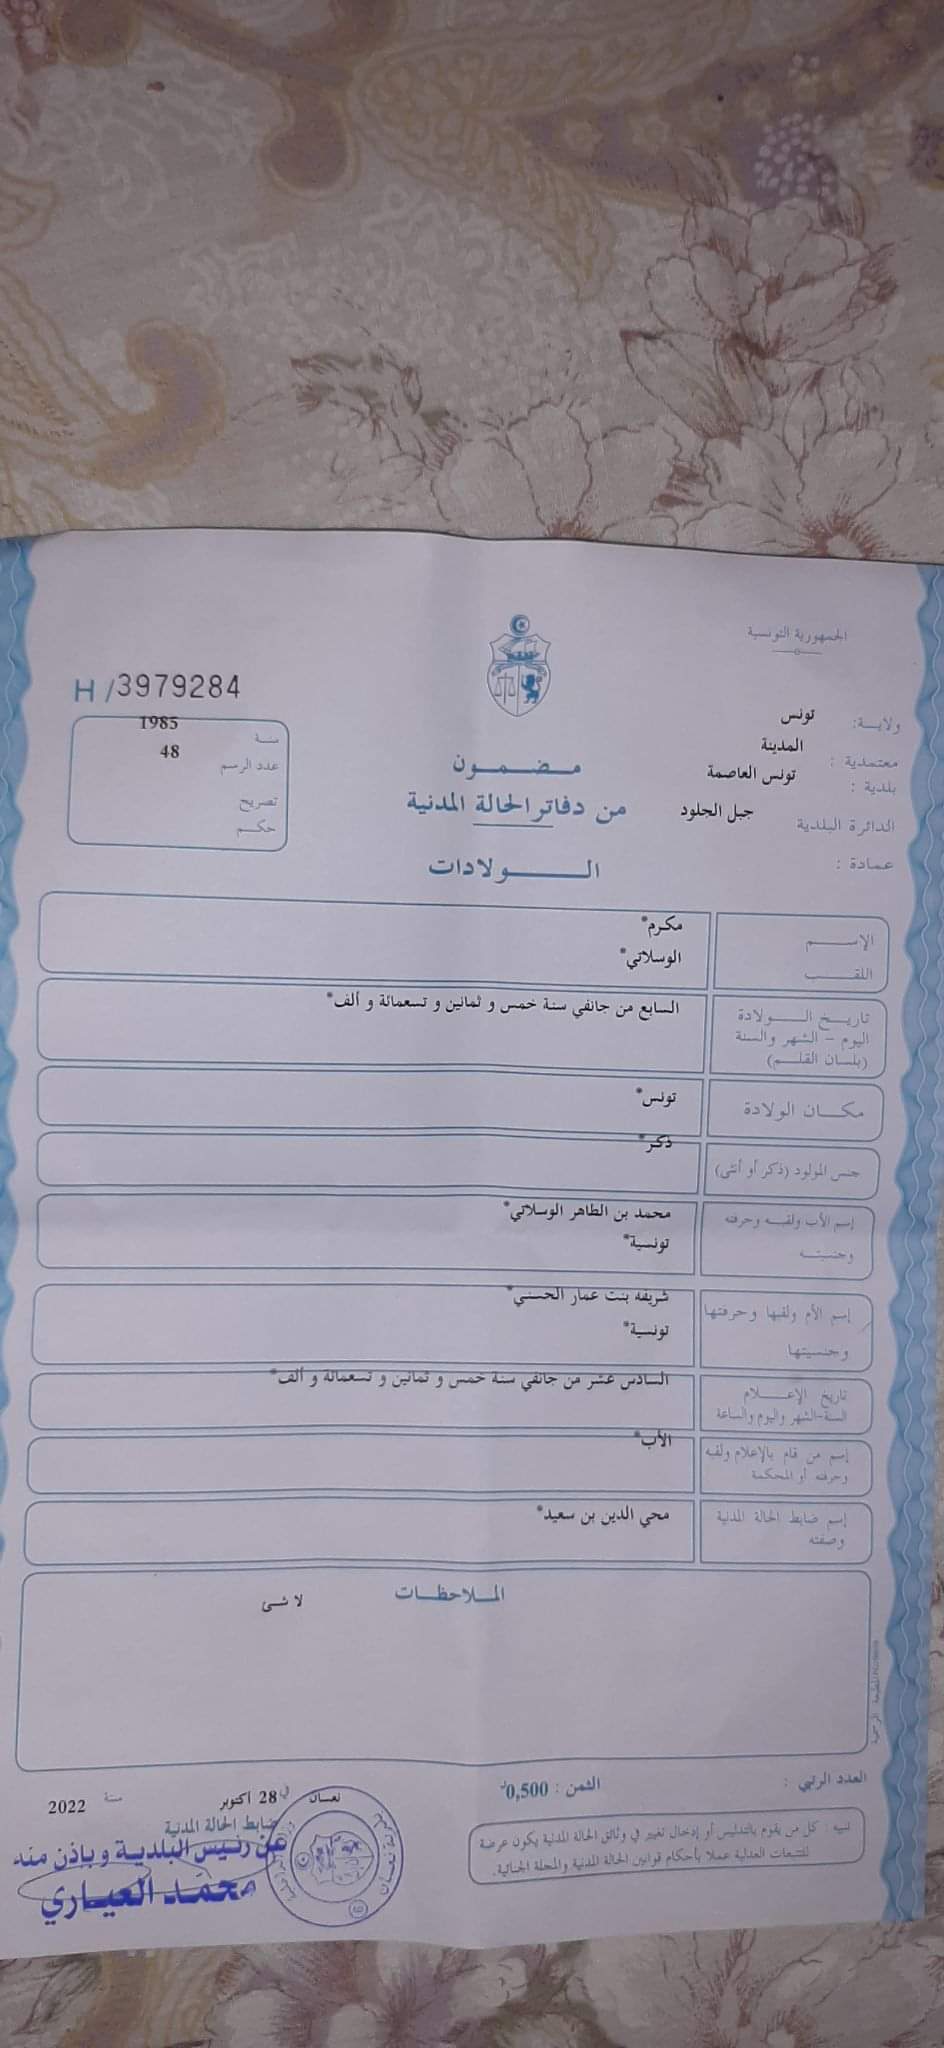 الجمهورية التونسية
H / 3979284
ولاية: تونس
معتمدية : المدينة
بلدية : تونس العاصمة
الدائرة البلدية جبل الجلود
عمادة :
سنة 1985
عدد الرسم 48
تصريح
حكم
مضمون
من دفاتر الحالة المدنية
الولادات
الإسم مكرم*
اللقب الوسلاتي*
تاريخ الولادة السابع من جانفي سنة خمس و ثمانين و تسعمائة و ألف*
اليوم - الشهر والسنة
(بلسان القلم)
مكان الولادة تونس*
جنس المولود (ذكر أو أنثى) ذكر*
إسم الأب ولقبه وحرفته محمد بن الطاهر الوسلاتي*
وجنسيته تونسية*
إسم الأم ولقبها وحرفتها شريفه بنت عمار الحسني*
وجنسيتها تونسية*
تاريخ الإعلام السادس عشر من جانفي سنة خمس و ثمانين و تسعمائة و ألف*
السنة-الشهر واليوم والساعة
إسم من قام بالإعلام ولقبه الأب*
وحرفته أو المحكمة
إسم ضابط الحالة المدنية محي الدين بن سعيد*
وصفته
الملاحظات
لا شى
العدد الرتبي :
الثمن : 0,500د
نعسان في 28 أكتوبر سنة 2022
ضابط الحالة المدنية
عن رئيس البلدية و باذن منه
محمد العياري
تنبيه : كل من يقوم بالتدليس أو إدخال تغيير في وثائق الحالة المدنية يكون عرضة
للتتبعات العدلية عملا بأحكام قوانين الحالة المدنية والمجلة الجنائية.